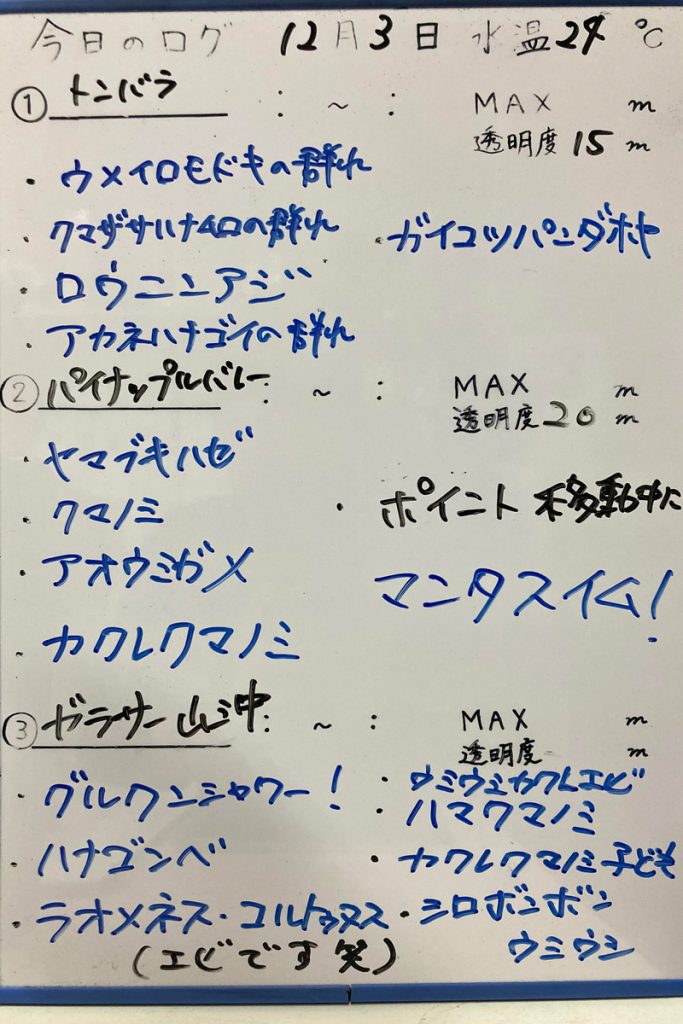 今日のログ 12月3日 水温24℃
① トンバラ : ~ : MAX m
透明度 15 m
・ウメイロモドキの群れ
・クマザサハナムロの群れ
・ガイコツパンダホヤ
・ロウニンアジ
・アカネハナゴイの群れ
② パイナップルバレー : ~ : MAX m
透明度 20 m
・ヤマブキハゼ
・クマノミ
・アオウミガメ
・カクレクマノミ
・ポイント移動中に
マンタスイム!
③ ガラサー山沖 : ~ : MAX m
透明度 m
・グルクンシャワー!
・ハナゴンベ
・ラオメネス・コルトゥヌス
(エビです笑)
・ウミウシカクレエビ
・ハマクマノミ
・カクレクマノミ子ども
・シロボンボン
ウミウシ